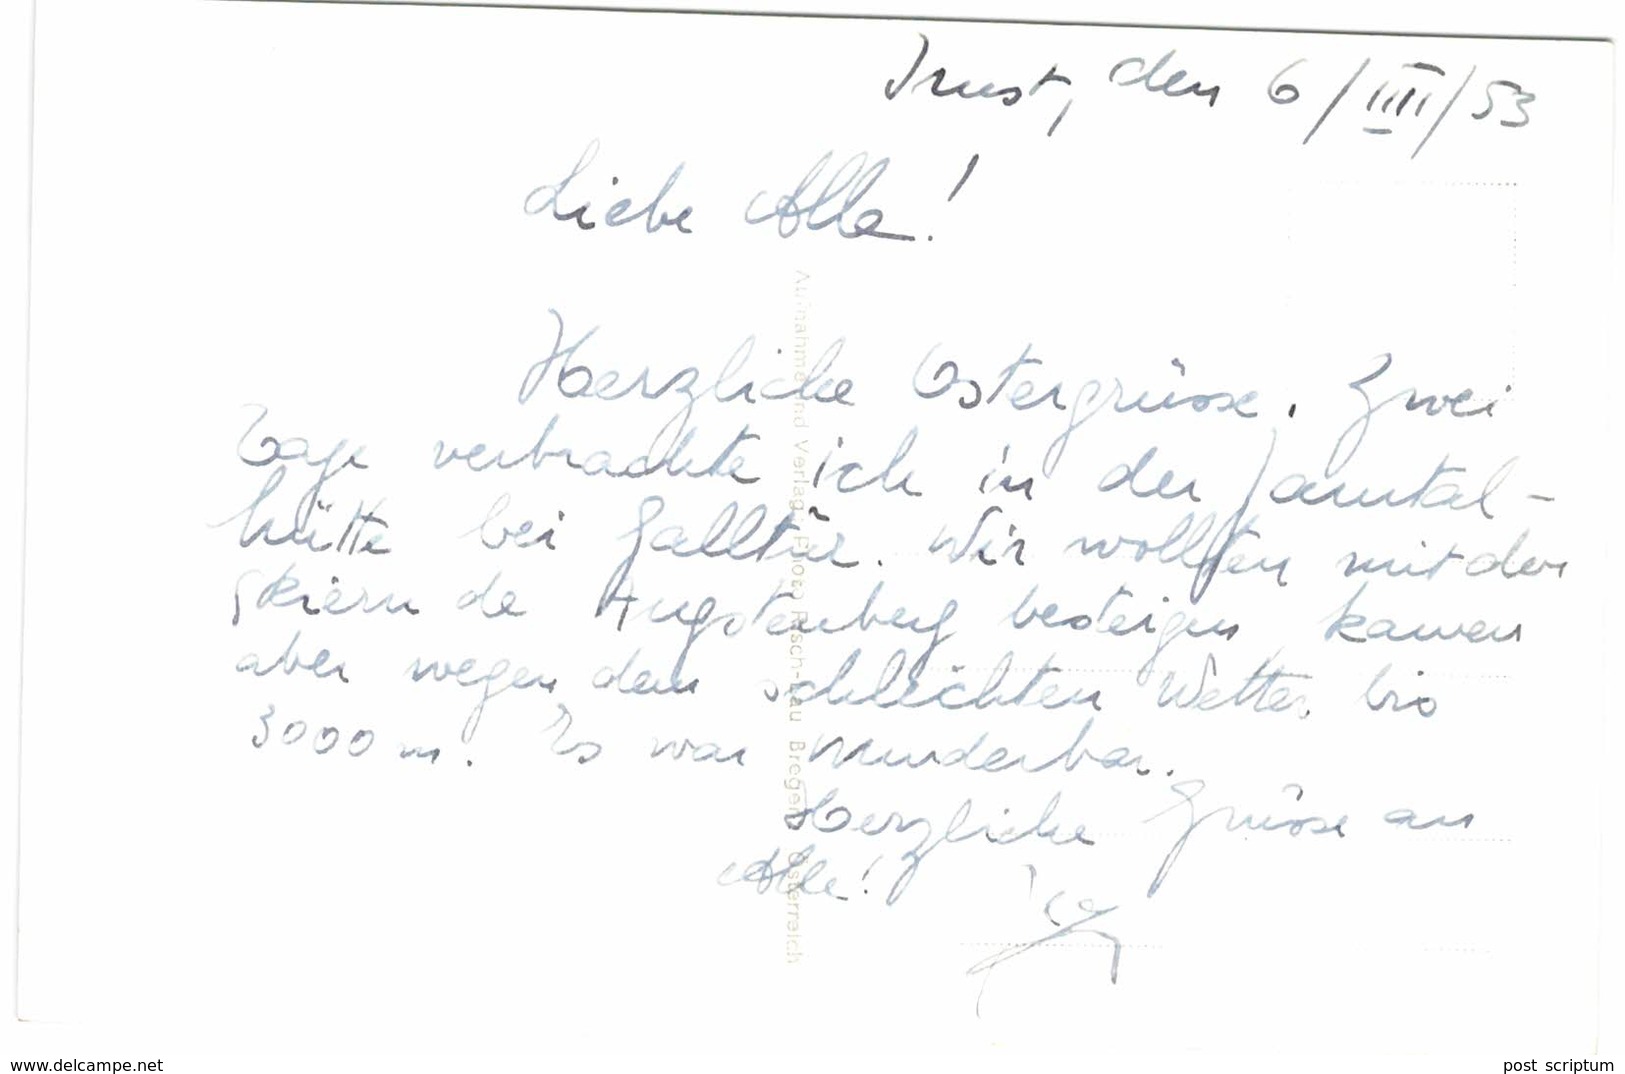 Imst, den 6/IIII/53
Liebe Alle!
Herzliche Ostergrüsse. Zwei
Tage verbrachte ich in der Jamtal-
hütte bei Galltür. Wir wollten mit den
Skiern de Augstenberg besteigen kamen
aber wegen dem schleichten Wetter bis
3000 m. Es war wunderbar.
Herzliche Grüsse an
Alle!
Aufnahme und Verlag: Photo Risch-Lau Bregenz Österreich
delcampe.net
post scriptum